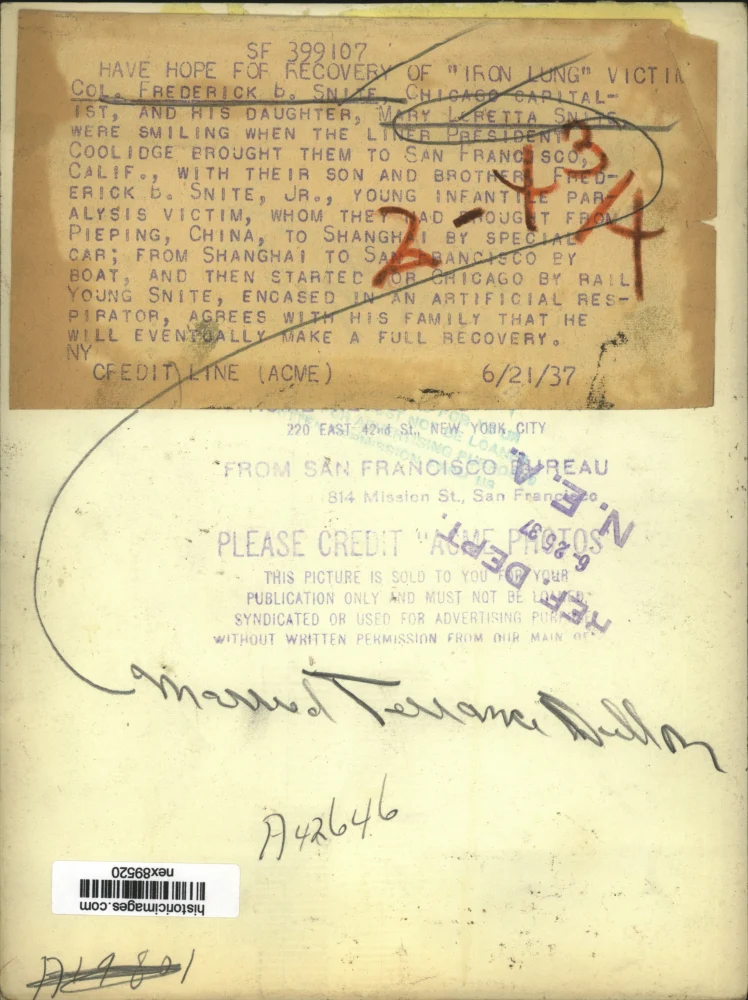 SF 399107
HAVE HOPE FOF RECOVERY OF "IRON LUNG" VICTIM
COL. FREDERICK B. SNITE, CHICAGO CAPITAL-
IST, AND HIS DAUGHTER, MARY LORETTA SNITE,
WERE SMILING WHEN THE LINER PRESIDENT
COOLIDGE BROUGHT THEM TO SAN FRANCISCO,
CALIF., WITH THEIR SON AND BROTHER, FRED-
ERICK B. SNITE, JR., YOUNG INFANTILE PAR-
ALYSIS VICTIM, WHOM THEY HAD BROUGHT FROM
PIEPING, CHINA, TO SHANGHAI BY SPECIAL
CAR; FROM SHANGHAI TO SAN FRANCISCO BY
BOAT, AND THEN STARTED FOR CHICAGO BY RAIL
YOUNG SNITE, ENCASED IN AN ARTIFICIAL RES-
PIRATOR, AGREES WITH HIS FAMILY THAT HE
WILL EVENTUALLY MAKE A FULL RECOVERY.
NY
CREDIT LINE (ACME) 6/21/37
2-4 3/4
220 EAST 42nd St., NEW YORK CITY
FROM SAN FRANCISCO BUREAU
814 Mission St., San Francisco
PLEASE CREDIT "ACME PHOTOS
THIS PICTURE IS SOLD TO YOU FOR YOUR
PUBLICATION ONLY AND MUST NOT BE LOANED,
SYNDICATED OR USED FOR ADVERTISING PURPOSES
WITHOUT WRITTEN PERMISSION FROM OUR MAIN OFFICE
N. E. A.
6-25 37
REF. DEPT.
Married Terrance Dillon
A42646
nex899520
historicimages.com
A19801